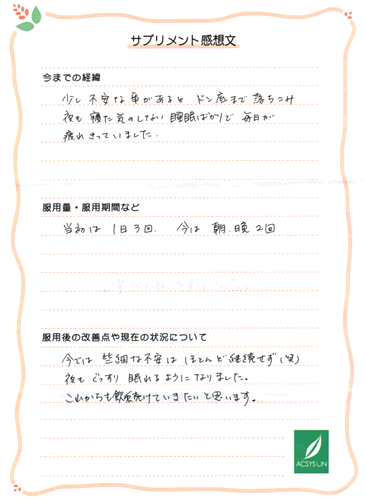 サプリメント感想文
今までの経緯
少し不安な事があると ドン底まで落ちこみ
夜も寝た気のしない睡眠ばかりで 毎日が
疲れきっていました.
服用量・服用期間など
当初は 1日3回. 今は 朝.晩2回
服用後の改善点や現在の状況について
今では 些細な不安は ほとんど継続せず(笑)
夜も ぐっすり 眠れるようになりました。
これからも飲み続けていきたいと思います。
ACSYSUN